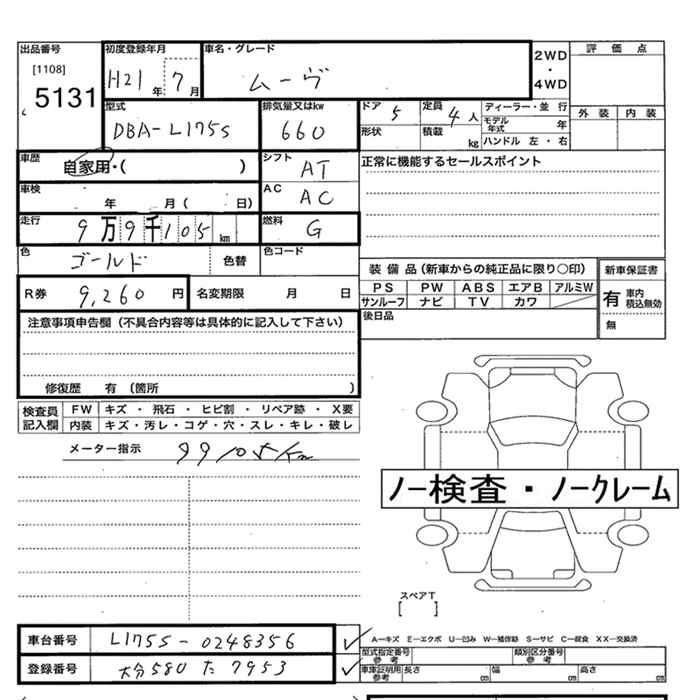 出品番号 初度登録年月 車名・グレード 2WD・4WD 評価点
[1108] 5131 H21年 7月 ムーヴ
外装 内装
型式 排気量又はkw ドア 5 定員 4人 ディーラー・並行
DBA-L175S 660 形状 積載 kg モデル年式 年
ハンドル 左・右
車歴 自家用・( ) シフト AT 正常に機能するセールスポイント
車検 年 月( 日) AC AC
走行 9万9千105km 燃料 G
色 ゴールド 色替 色コード
装備品(新車からの純正品に限り○印) 新車保証書
R券 9,260円 名変期限 月 日 PS PW ABS エアB アルミW 有 車内 積込無効
サンルーフ ナビ TV カワ 無
注意事項申告欄(不具合内容等は具体的に記入して下さい) 後日品
修復歴 有 (箇所 )
検査員記入欄 FW キズ・飛石・ヒビ割・リペア跡・X要
内装 キズ・汚レ・コゲ・穴・スレ・キレ・破レ
メーター指示 99105Km
ノー検査・ノークレーム
スペアT
[ ]
車台番号 L175S-0248356 A―キズ E―エクボ U―凹み W―補修跡 S―サビ C―腐食 XX―交換済
型式指定番号 参考 類別区分番号 参考
登録番号 大分580 た 7953 車庫証明用 参考 長さ cm 幅 cm 高さ cm